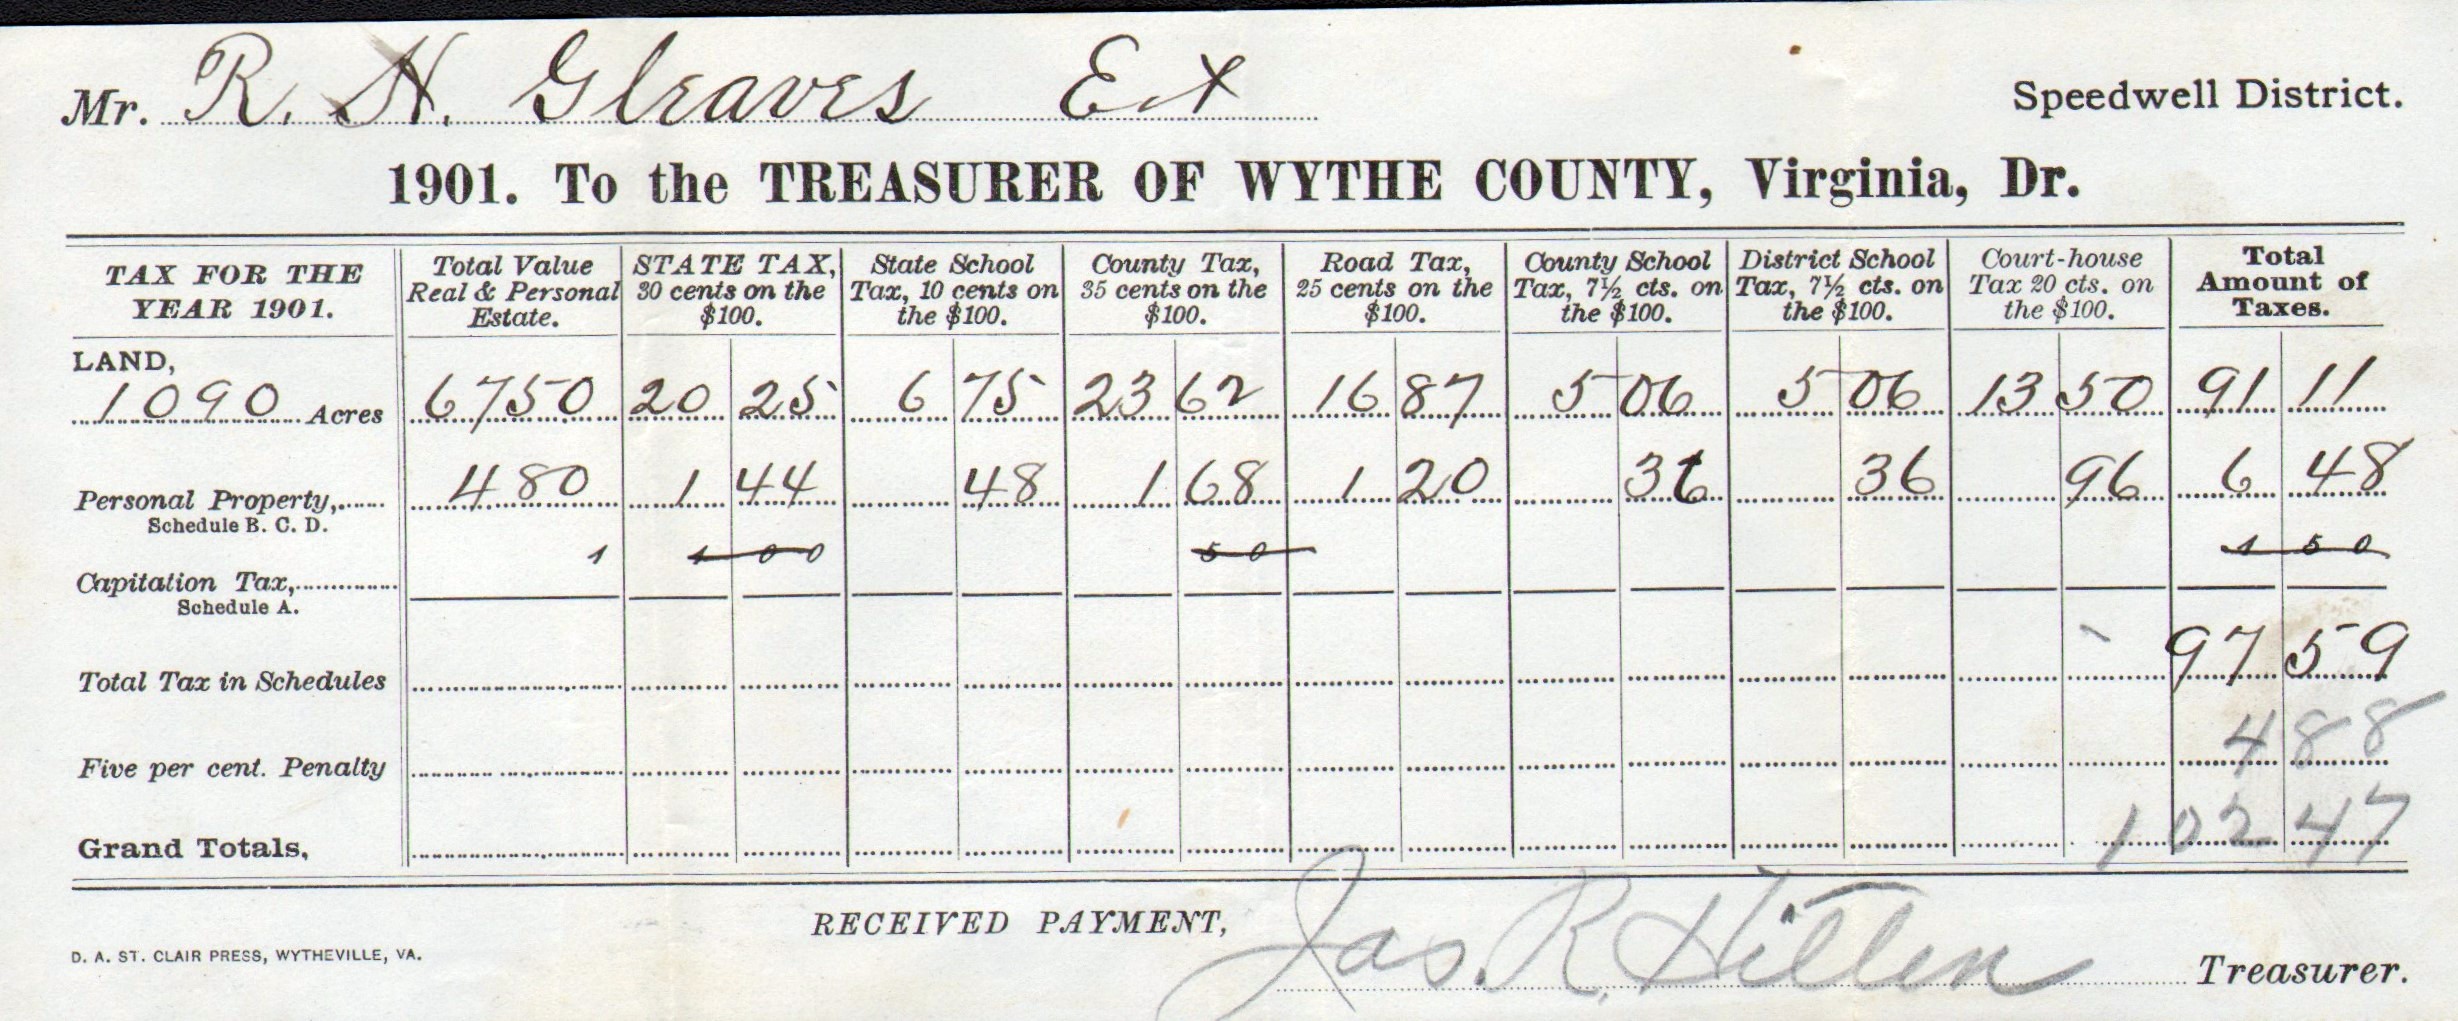 Mr. R. H. Gleaves Ex
Speedwell District.
1901. To the TREASURER OF WYTHE COUNTY, Virginia, Dr.
TAX FOR THE YEAR 1901. Total Value Real & Personal Estate. STATE TAX, 30 cents on the $100. State School Tax, 10 cents on the $100. County Tax, 35 cents on the $100. Road Tax, 25 cents on the $100. County School Tax, 7½ cts. on the $100. District School Tax, 7½ cts. on the $100. Court-house Tax 20 cts. on the $100. Total Amount of Taxes.
LAND,
1090 Acres 6750 20 25 6 75 23 62 16 87 5 06 5 06 13 50 91 11
Personal Property, 480 1 44 48 1 68 1 20 36 36 96 6 48
Schedule B. C. D.
Capitation Tax, 1 1 00 50 1 50
Schedule A.
Total Tax in Schedules 97 59
Five per cent. Penalty 4 88
Grand Totals, 102 47
RECEIVED PAYMENT, Jas. R. Hillen Treasurer.
D. A. ST. CLAIR PRESS, WYTHEVILLE, VA.